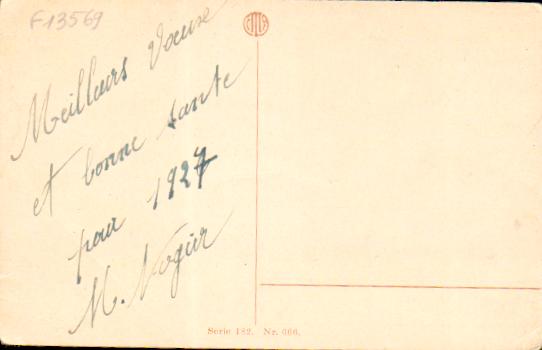 F13569
Meilleurs Voeuxe
et bonne sante
pour 1927
M. Nogier
Serie 182. Nr. 666.